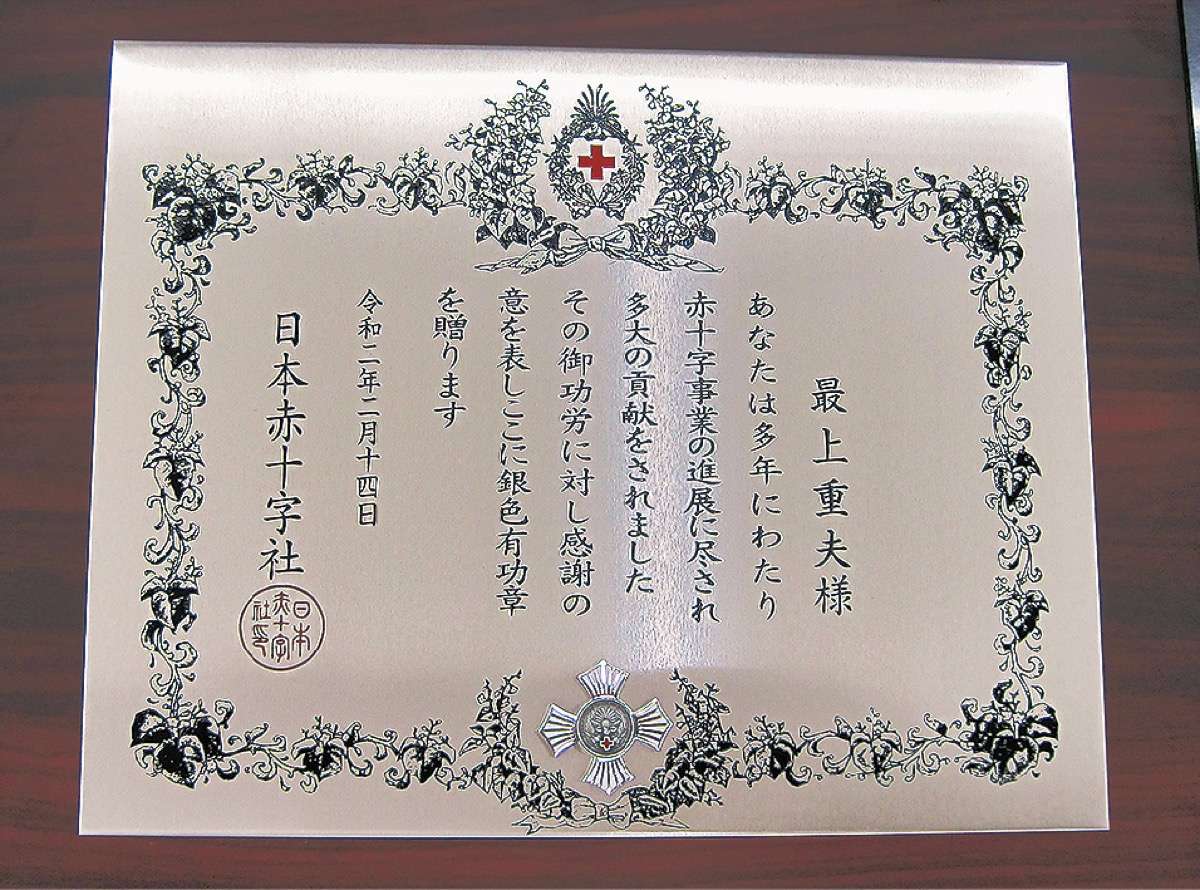 最上重夫様
あなたは多年にわたり
赤十字事業の進展に尽され
多大の貢献をされました
その御功労に対し感謝の
意を表しここに銀色有功章
を贈ります
令和二年二月十四日
日本赤十字社
日本
赤十字
社印